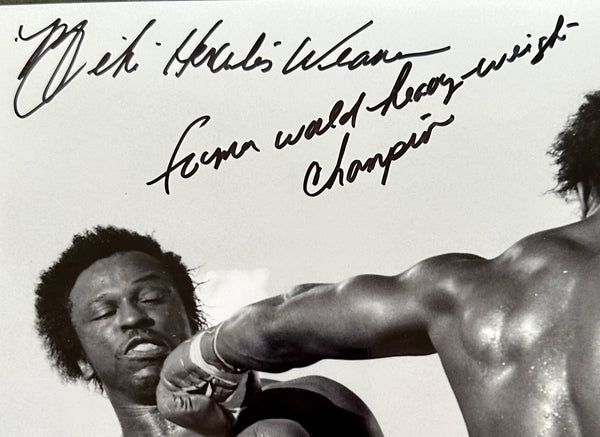 Mike Hercules Weaver
former world heavy-weight
Champion